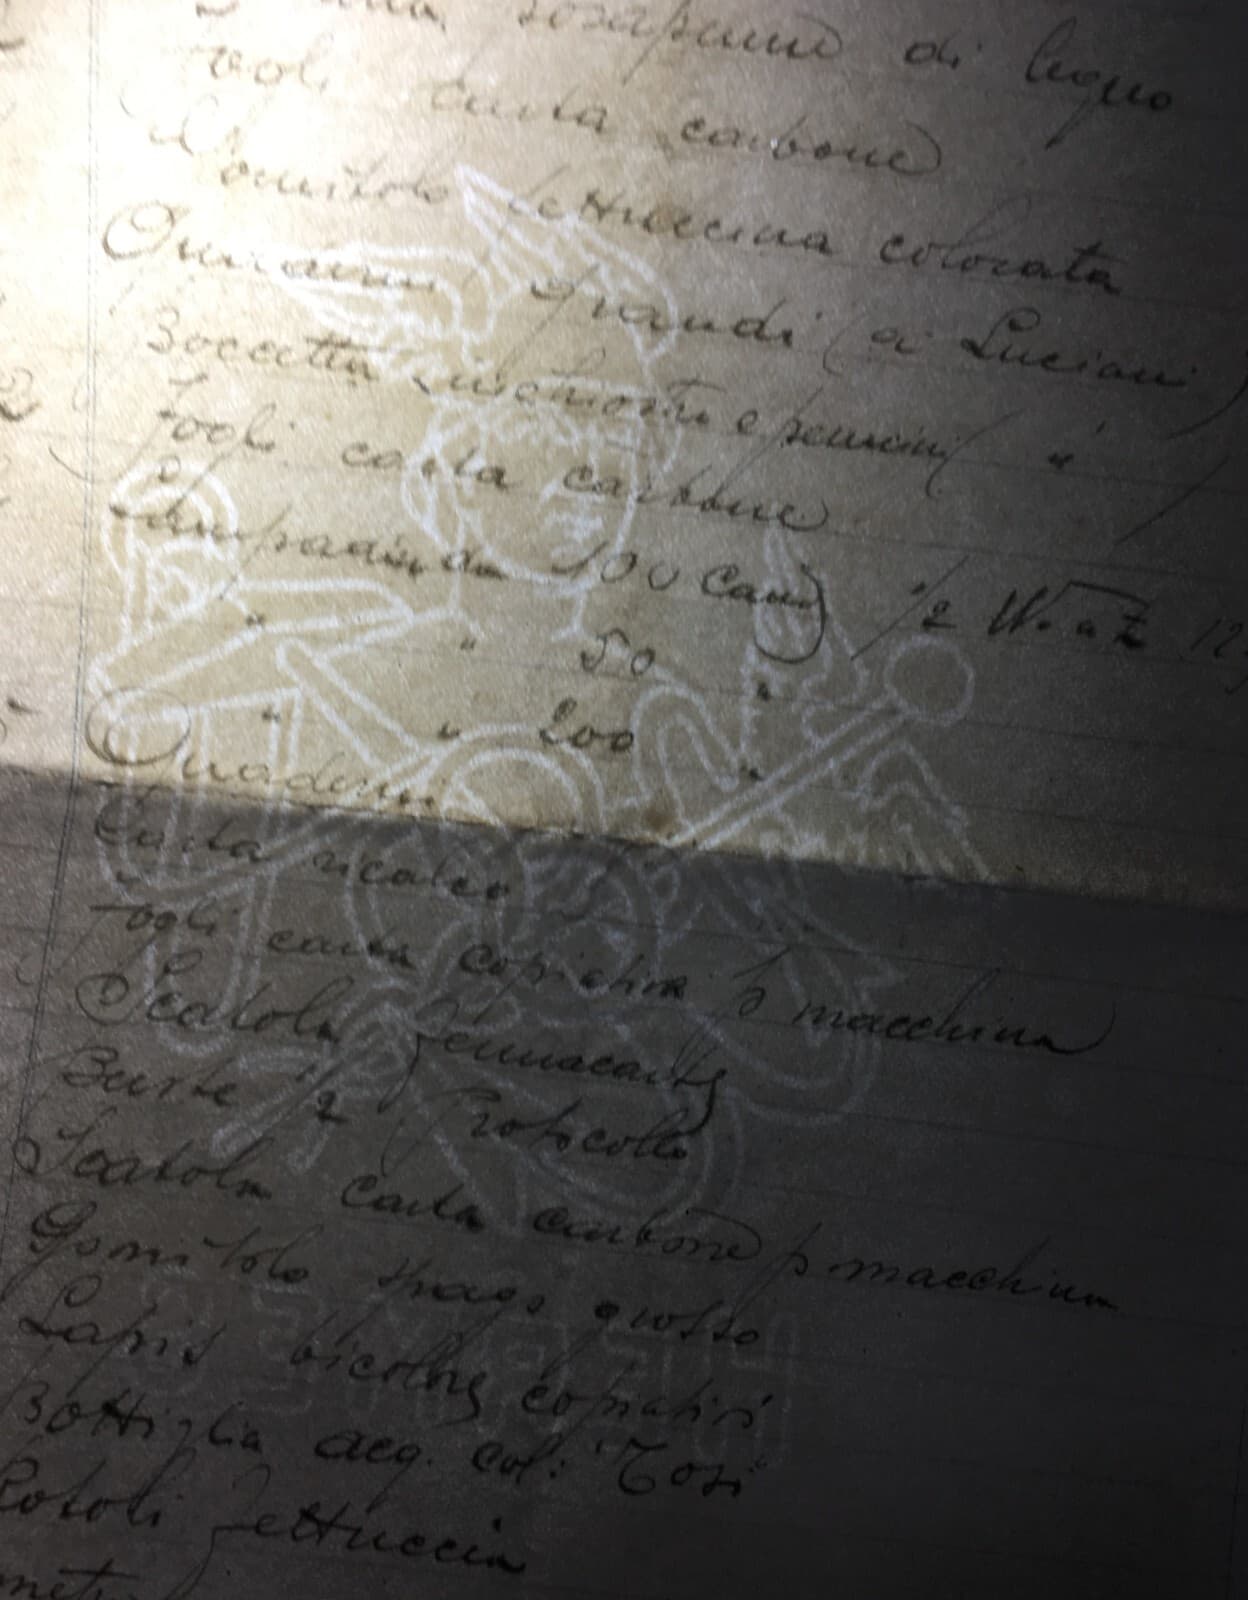 sosapenne di legno
Fogli carta carbone
Gomitolo fettuccina colorata
Quaderni grandi (a Luciani)
Boccetta inchiostri e pennini ( " )
Fogli carta carbone
Lampadine da 100 Cand 1/2 Watt 12
" " 50 "
" " 200 "
Quaderni
Carta ricalco
Fogli carta copiativa p macchina
Scatola fermacarte
Buste 1/2 Protocollo
Scatola carta carbone p macchina
Gomitolo spago grosso
Lapis bicolore copiativi
Bottiglia acq. col: "Tosi"
Rotoli fettuccia